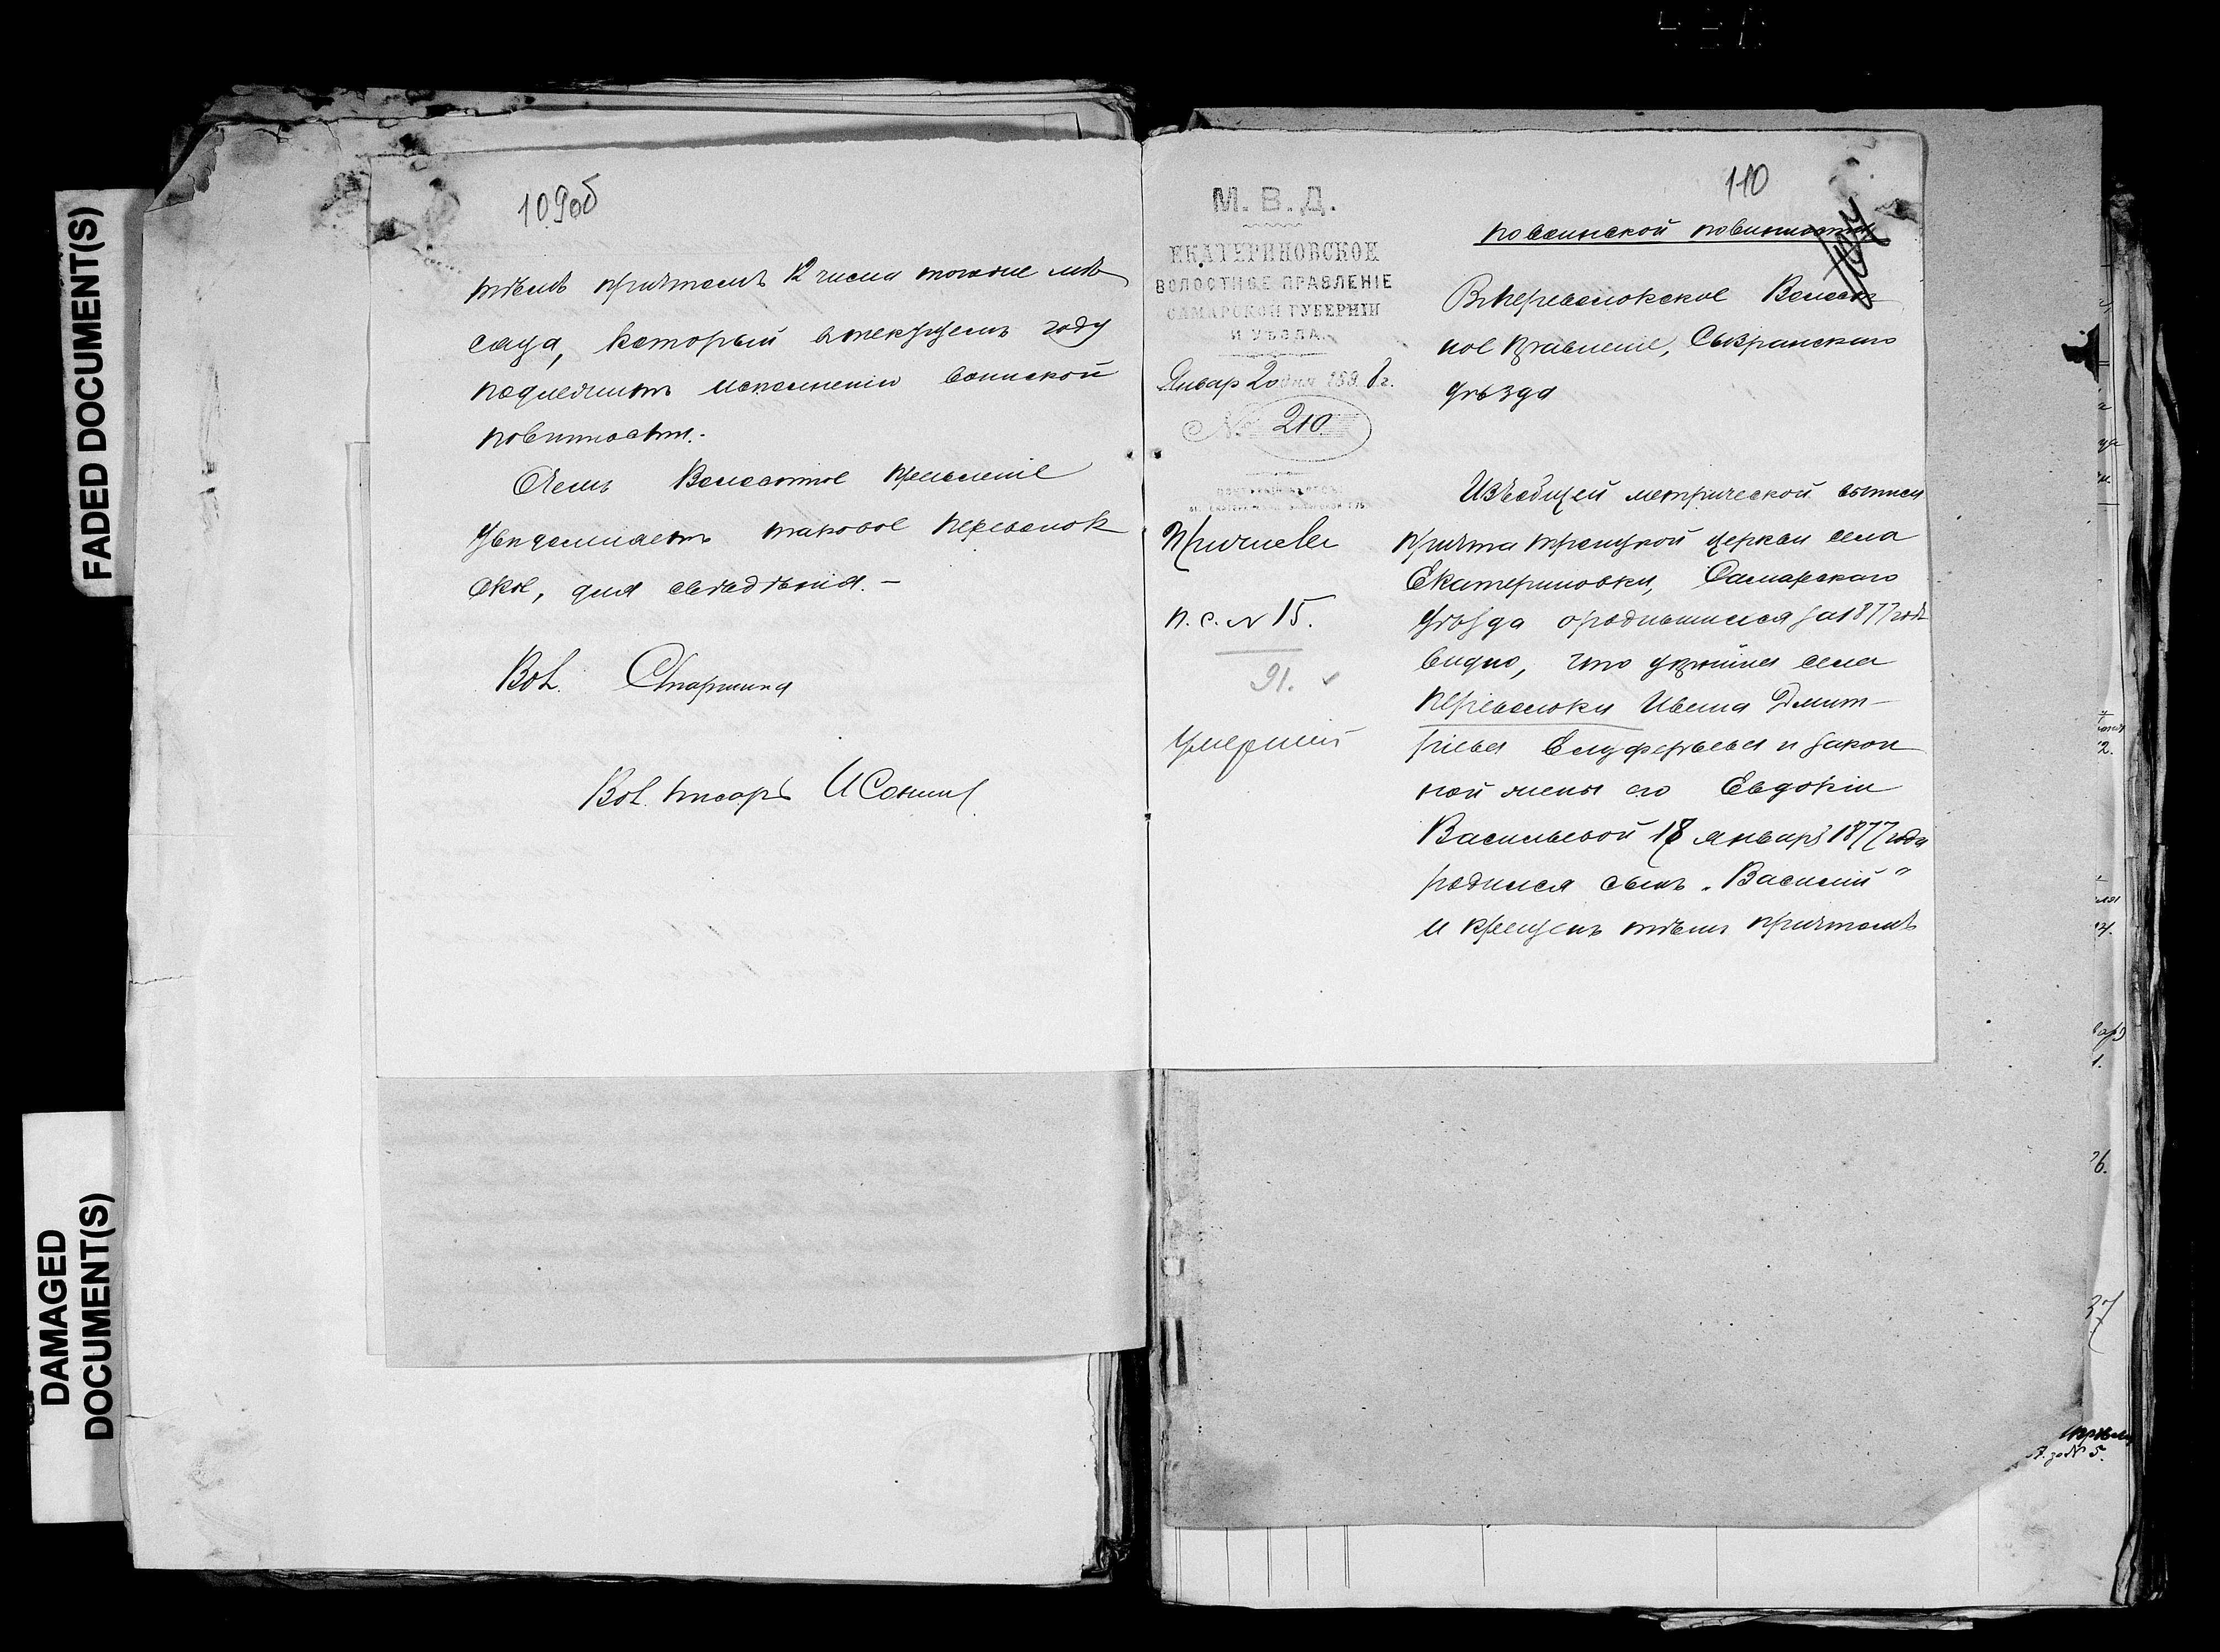 FADED DOCUMENT(S)
DAMAGED
DOCUMENT(S)
109об
тѣмъ причтомъ 12 числа того же мѣ
сяца, который в текущемъ году
подлежитъ исполненію воинской
повинности.-
О чемъ Волостное Правленіе
увѣдомляетъ таковое Переволок
ское, для свѣдѣнія.-
Вол. Старшина
Вол. писарь
110
М. В. Д.
ЕКАТЕРИНОВСКОЕ
ВОЛОСТНОЕ ПРАВЛЕНІЕ
САМАРСКОЙ ГУБЕРНІИ
И УѢЗДА
Январ 20 дня 1898 г.
№ 210
п. с. № 15.
91.
Умершій
По воинской повинности
Въ Переволокское Волост
ное Правленіе, Сызранскаго
уѣзда
Изъ общей метрической выписи
причта Троицкой церкви села
Екатериновки, Самарскаго
уѣзда о родившихся за 1877 годъ
видно, что у
села
Переволоки Ивана Димит-
ріева Елуферьева и закон
ной жены его Евдокіи
Васильевой 18 январѣ 1877 года
родился сынъ „Василій"
и крещенъ тѣмъ причтомъ